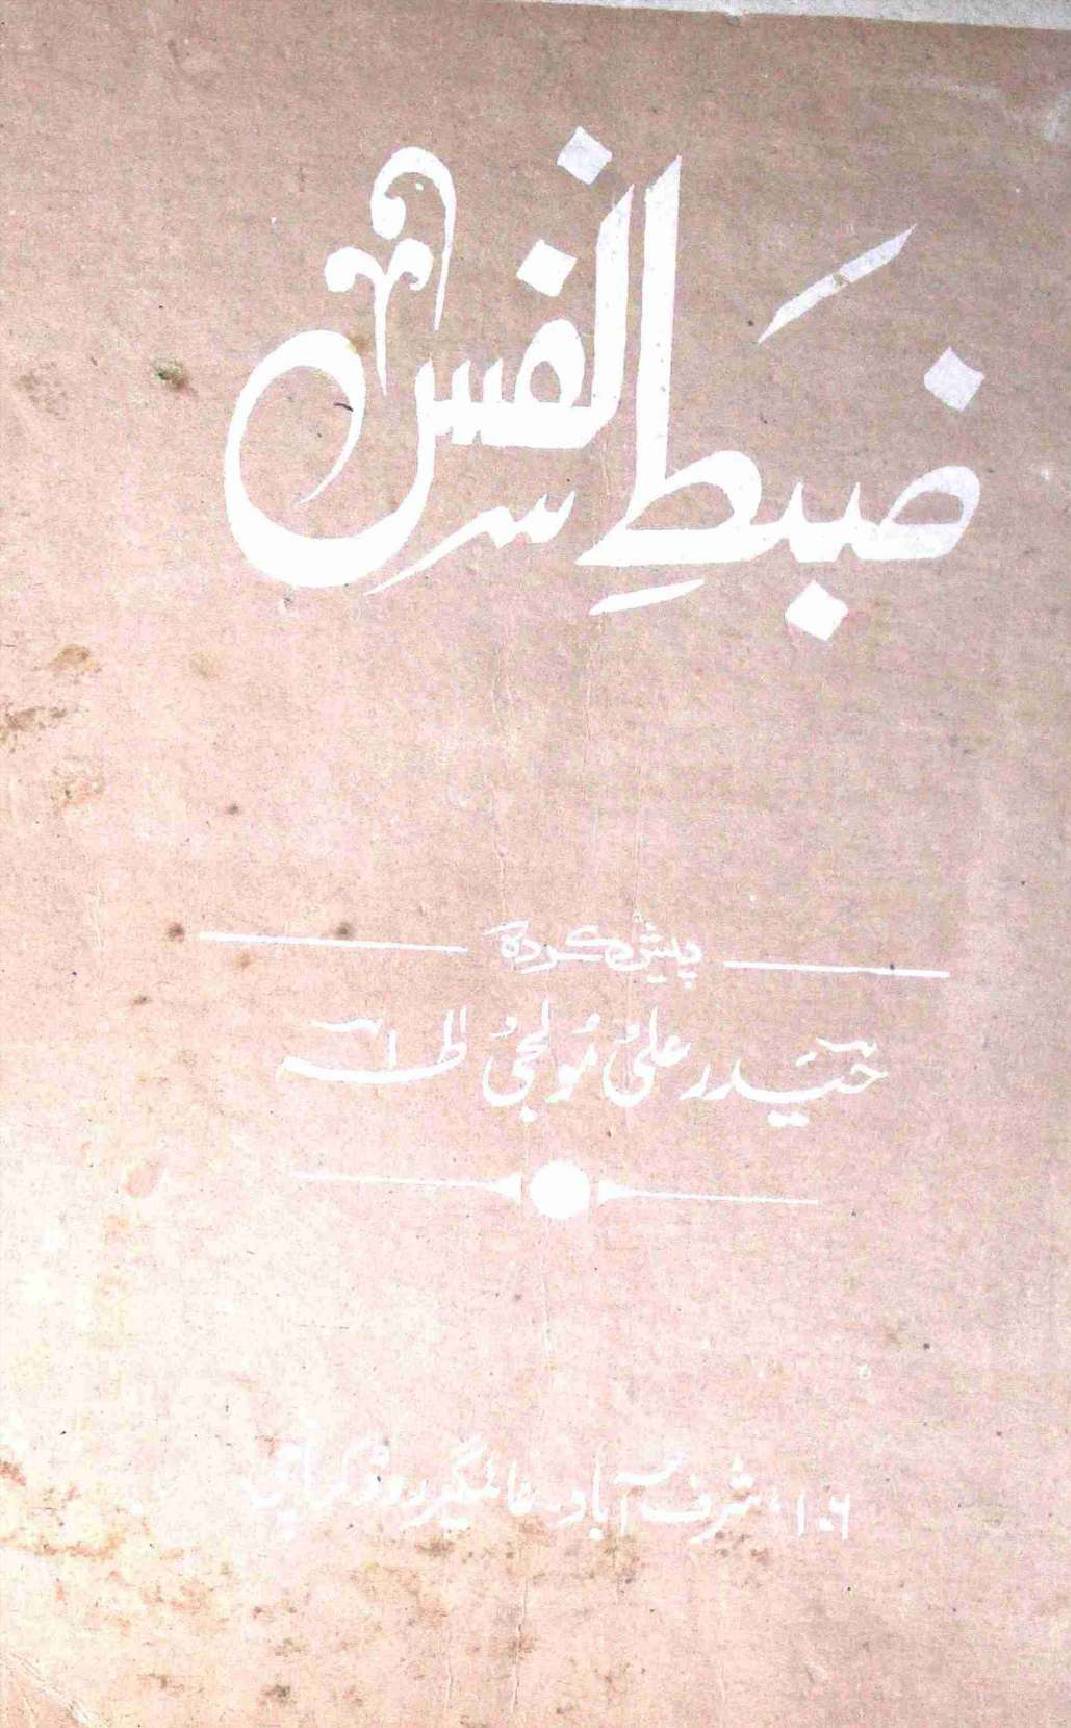 ضبطِ نفس
پیش کردہ
حیدر علی مولجی طٰہٰ
۱۰۶، شرف آباد۔ عالمگیر روڈ کراچی